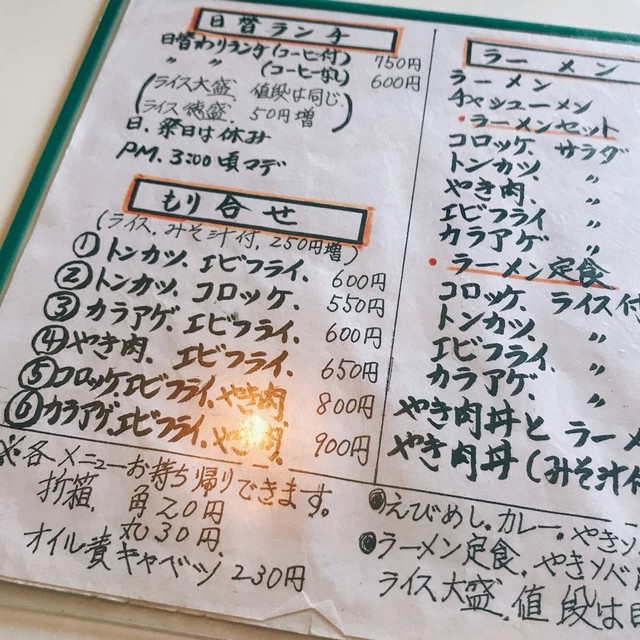 日替ランチ
日替わりランチ(コーヒ付) 750円
〃 〃 (コーヒなし) 600円
(ライス大盛 値段は同じ
ライス徳盛 50円増)
日、祭日は休み
PM. 3:00頃マデ
もり合せ
(ライス、みそ汁付、250円増)
①トンカツ、エビフライ、 600円
②トンカツ、コロッケ、 550円
③カラアゲ、エビフライ、 600円
④やき肉、エビフライ、 650円
⑤コロッケ、エビフライ、やき肉、 800円
⑥カラアゲ、エビフライ、やき肉、 900円
※各メニューお持ち帰りできます。
折箱、角20円
丸30円、
オイル漬キャベツ 230円
ラーメン
ラーメン
チャシューメン
・ラーメンセット
コロッケ サラダ
トンカツ、 〃
やき肉、 〃
エビフライ 〃
カラアゲ 〃
・ラーメン定食
コロッケ、ライス付
トンカツ、 〃
エビフライ、 〃
カラアゲ、 〃
やき肉丼とラーメ
やき肉丼(みそ汁付
◉えびめし。カレー。やきソ
◉ラーメン定食、やきソバ
ライス大盛、値段は同